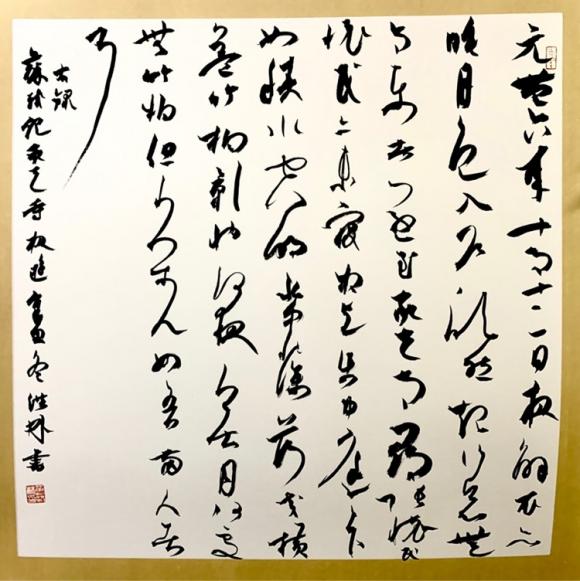 元豐六年十月十二日夜解衣欲
睡月色入户欣然起行念無
与樂者遂至承天寺尋張懷民
懷民亦未寢相与步于中庭庭下
如積水空明水中藻荇交横
盖竹柏影也何夜無月何處
無竹柏但少閑人如吾兩人者
耳
右録
蘇軾記承天寺夜遊 冬 林書